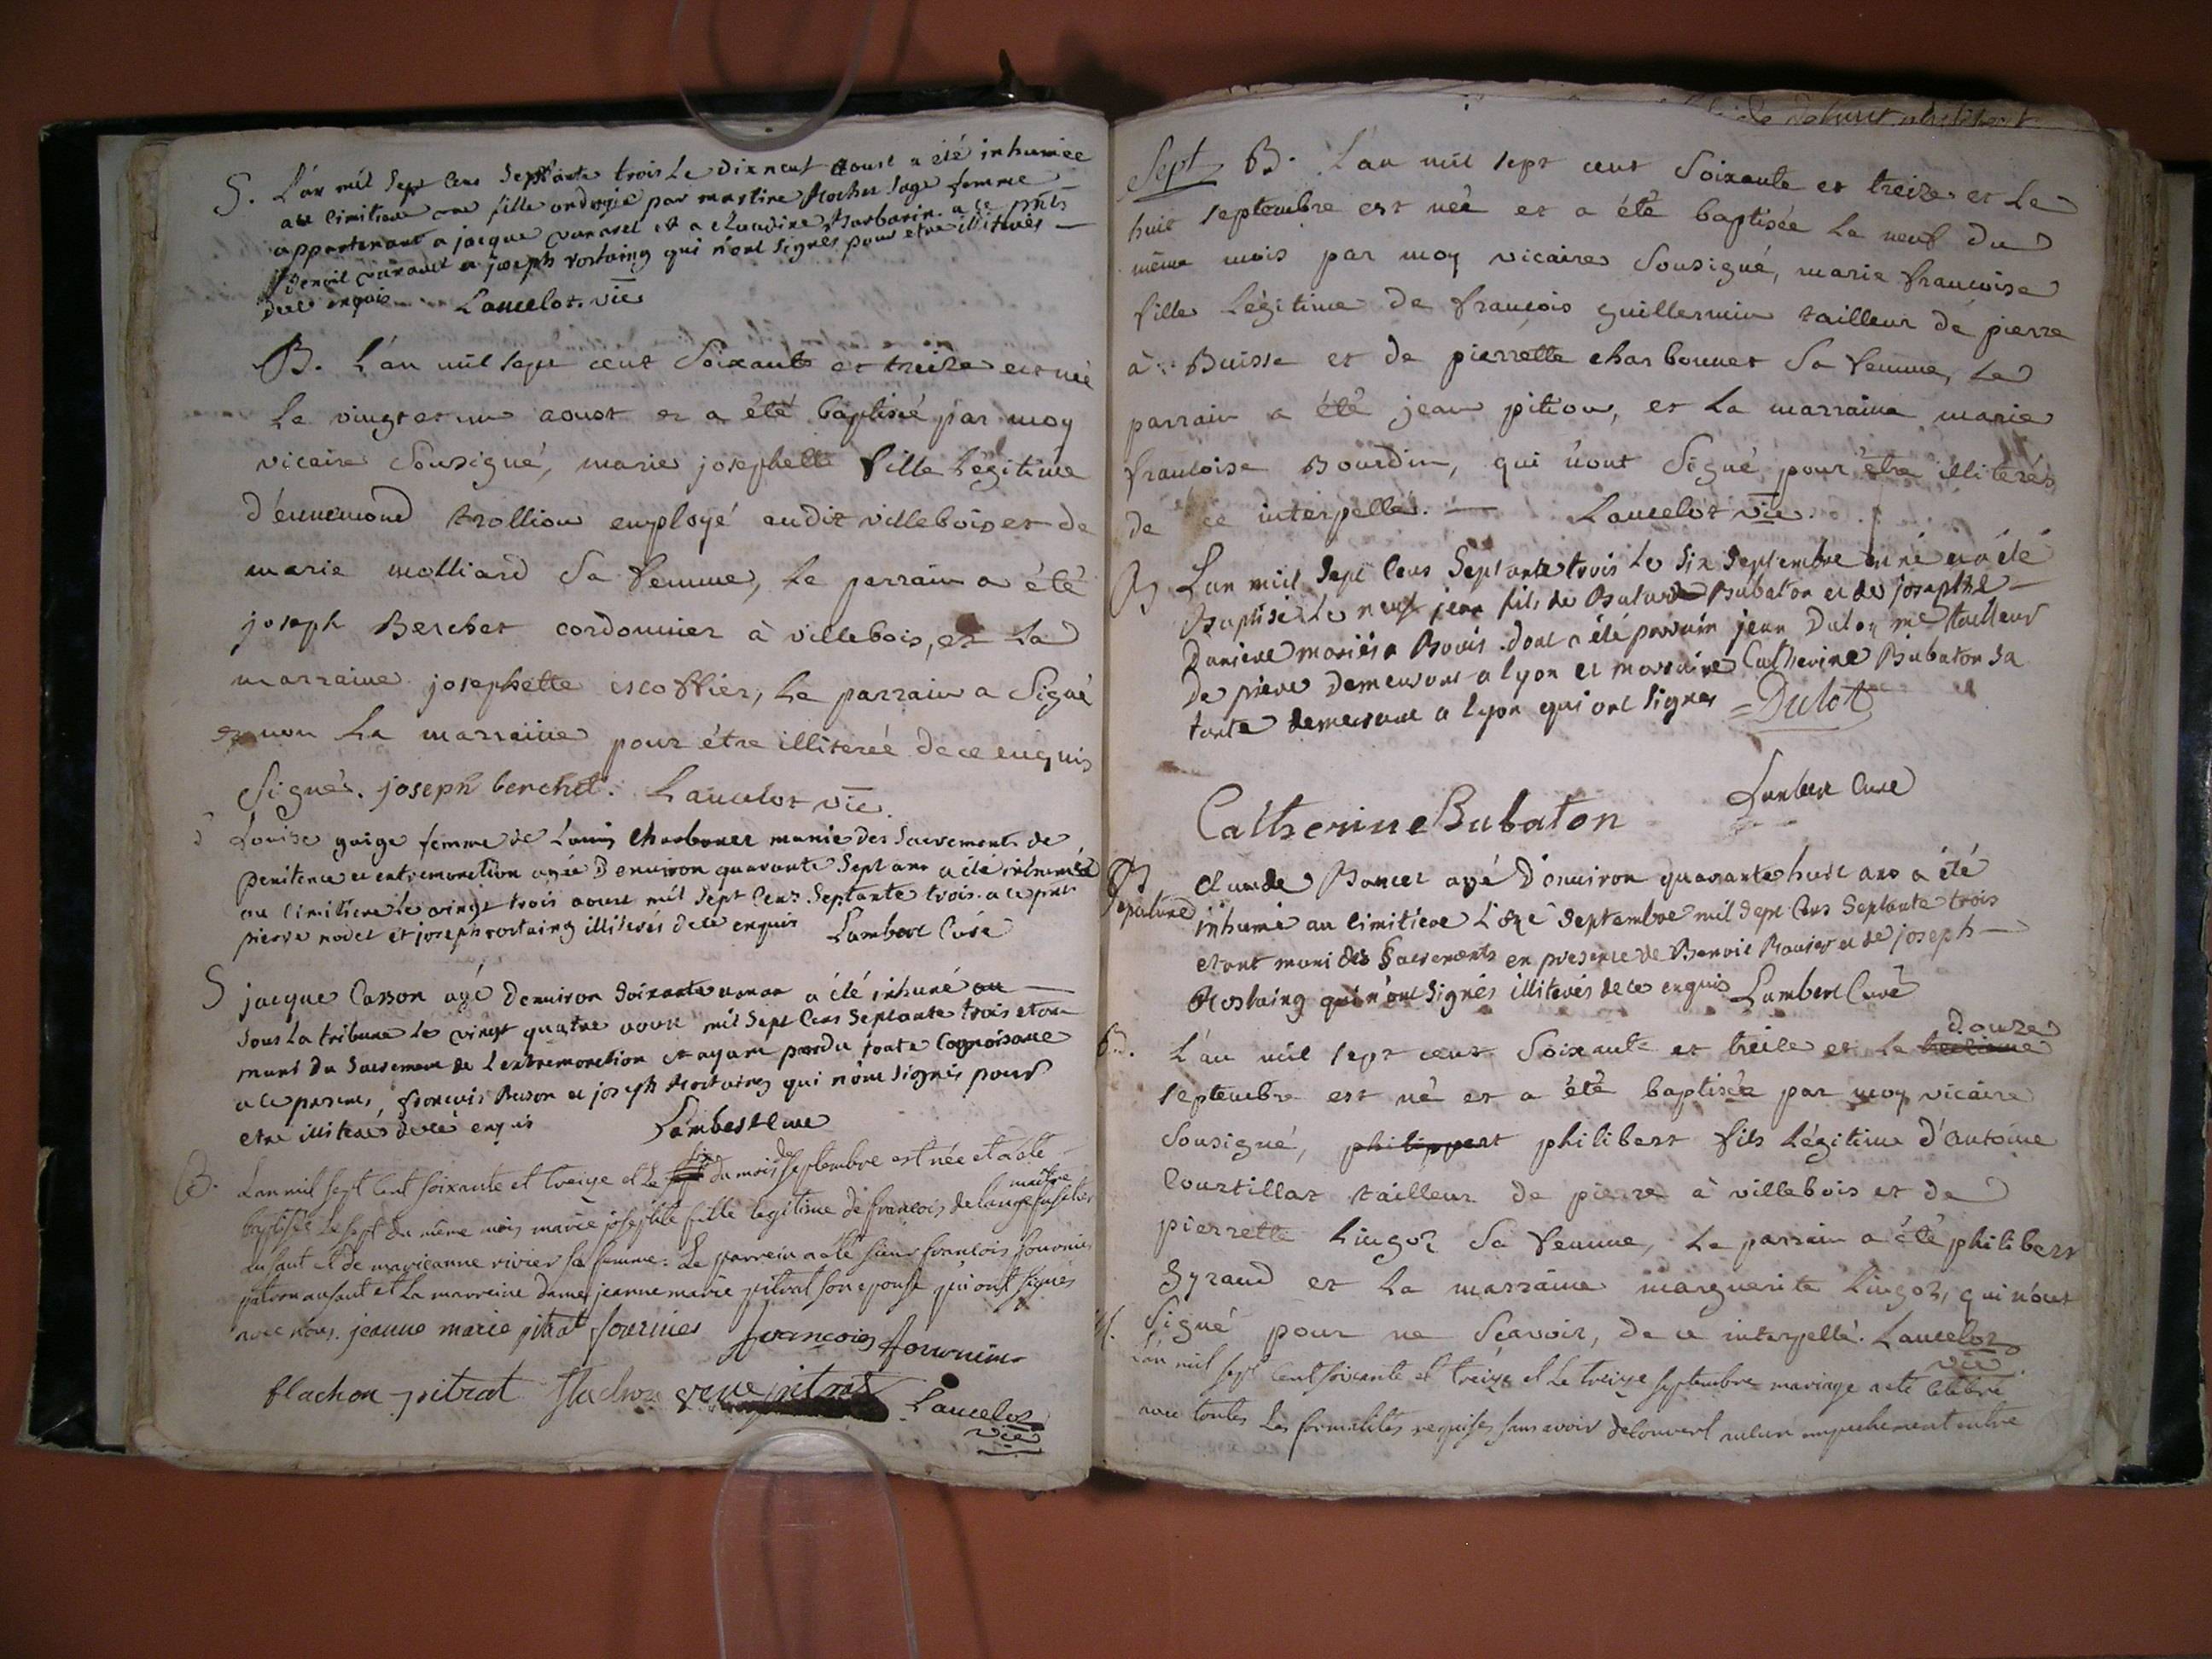 S. L'an mil Sept Cens Septante trois Le Dixneuf aoust a été inhumée
au Cimitiere une fille ondoyée par martine Rochu Sage femme
appartenant a jacque vanarel et a Claudine Barbarin. a ce prñts
Benoit vanarel et joseph rostaing qui n'ont Signés pour etre illiterés —
dece enquis Lancelot. vic
B. L'an mil sept cent Soixante et treize est née
Le vingt et un aoust et a été baptisée par moy
vicaire Sousigné, marie josephette fille Légitime
d'ennemond trollion employé audit villebois et de
marie molliard Sa femme, Le parrain a été
joseph Berchet cordonnier à villebois, et La
marraine josephette escoffier, Le parrain a Signé
et non La marraine pour étre illiterée de ce enquis
Signés. joseph berchet. Lancelot vic.
S Louise guige femme de Louis Charbonet munie des Sacrements de
penitence et extremonction agée D'environ quarante Sept ans a été inhumée
au Cimitiere le vingt trois aoust mil Sept Cens Septante trois. a ce prñts
pierre nodet et joseph rostaing illiterés dece enquis Lambert Curé
S jacque Casson agé Denviron Soixante un an a été inhumé au —
Sous La tribune Le vingt quatre aoust mil Sept Cens Septante trois etant
muni du Sacrement de L'extremonction et ayant perdu toute Cognoisance
a ce presents, francois Buson et joseph Rostaing qui n'ont Signés pour
etre illiterés dece enquis Lambert Cure
B. L'an mil sept Cent soixante et treize et Le six du mois de septembre est née et a été
baptisée Le sept du même mois marie josephte fille legitime de francois delange maitre fusilier
au saut et de marieanne rivier sa femme: Le parrein a été sieur francois fournier
patron au saut et La marreine dame jeanne marie pitrat son epouse qui ont signés
avec nous. jeanne marie pitrat fournier francois fournier
flachon pitrat flachon pitrat Lancelot
vic
Sept B. L'an mil sept cent Soixante et treize et Le
huit septembre est née et a été baptisée Le neuf du
même mois par moy vicaire Sousigné, marie francoise
fille Légitime de francois guillermin tailleur de pierre
à Buisse et de pierrette charbonnet Sa femme, Le
parrain a été jean pition, et La marraine marie
francoise Bourdin, qui n'ont Signé pour étre illiterés
de ce interpellés. — Lancelot vic.
B Lan mil Sept Cens Septante trois Le Six Septembre est né et a été
Baptisé Le neuf jean fils de Bubaton et de josephte —
Daniere mariés a Bouis. dont a été parrain jean Dulot me tailleur
De pierre Demeurant a lyon et maraine Catherine Bubaton Sa
tante demeurant a lyon qui ont Signes Dulot
Catherine Bubaton Lambert Curé
Sepulture Claude Boncet agé D'environ quarante huit ans a été
inhumé au Cimitiere L'onze Septembre mil Sept Cens Septante trois
etant muni des Sacrements en presence de Benoit Ravier et de joseph —
Rostaing qui n'ont Signés illiterés de ce enquis Lambert Curé
B. L'an mil sept cent Soixante et treize et Le douze
septembre est né et a été baptisée par moy vicaire
Sousigné, philippert philibert fils Légitime d'antoine
Courtillat tailleur de pierre à villebois et de
pierrette Lingot Sa femme, Le parrain a été philibert
Gyraud et La marraine marguerite Lingot, qui n'ont
Signé pour ne Scavoir, de ce interpellé. Lancelot
vic
M. L'an mil sept Cent soixante et treize et Le treize septembre mariage a été Celébré
avec toutes Les formalités requises sans avoir découvert aucun empechement entre